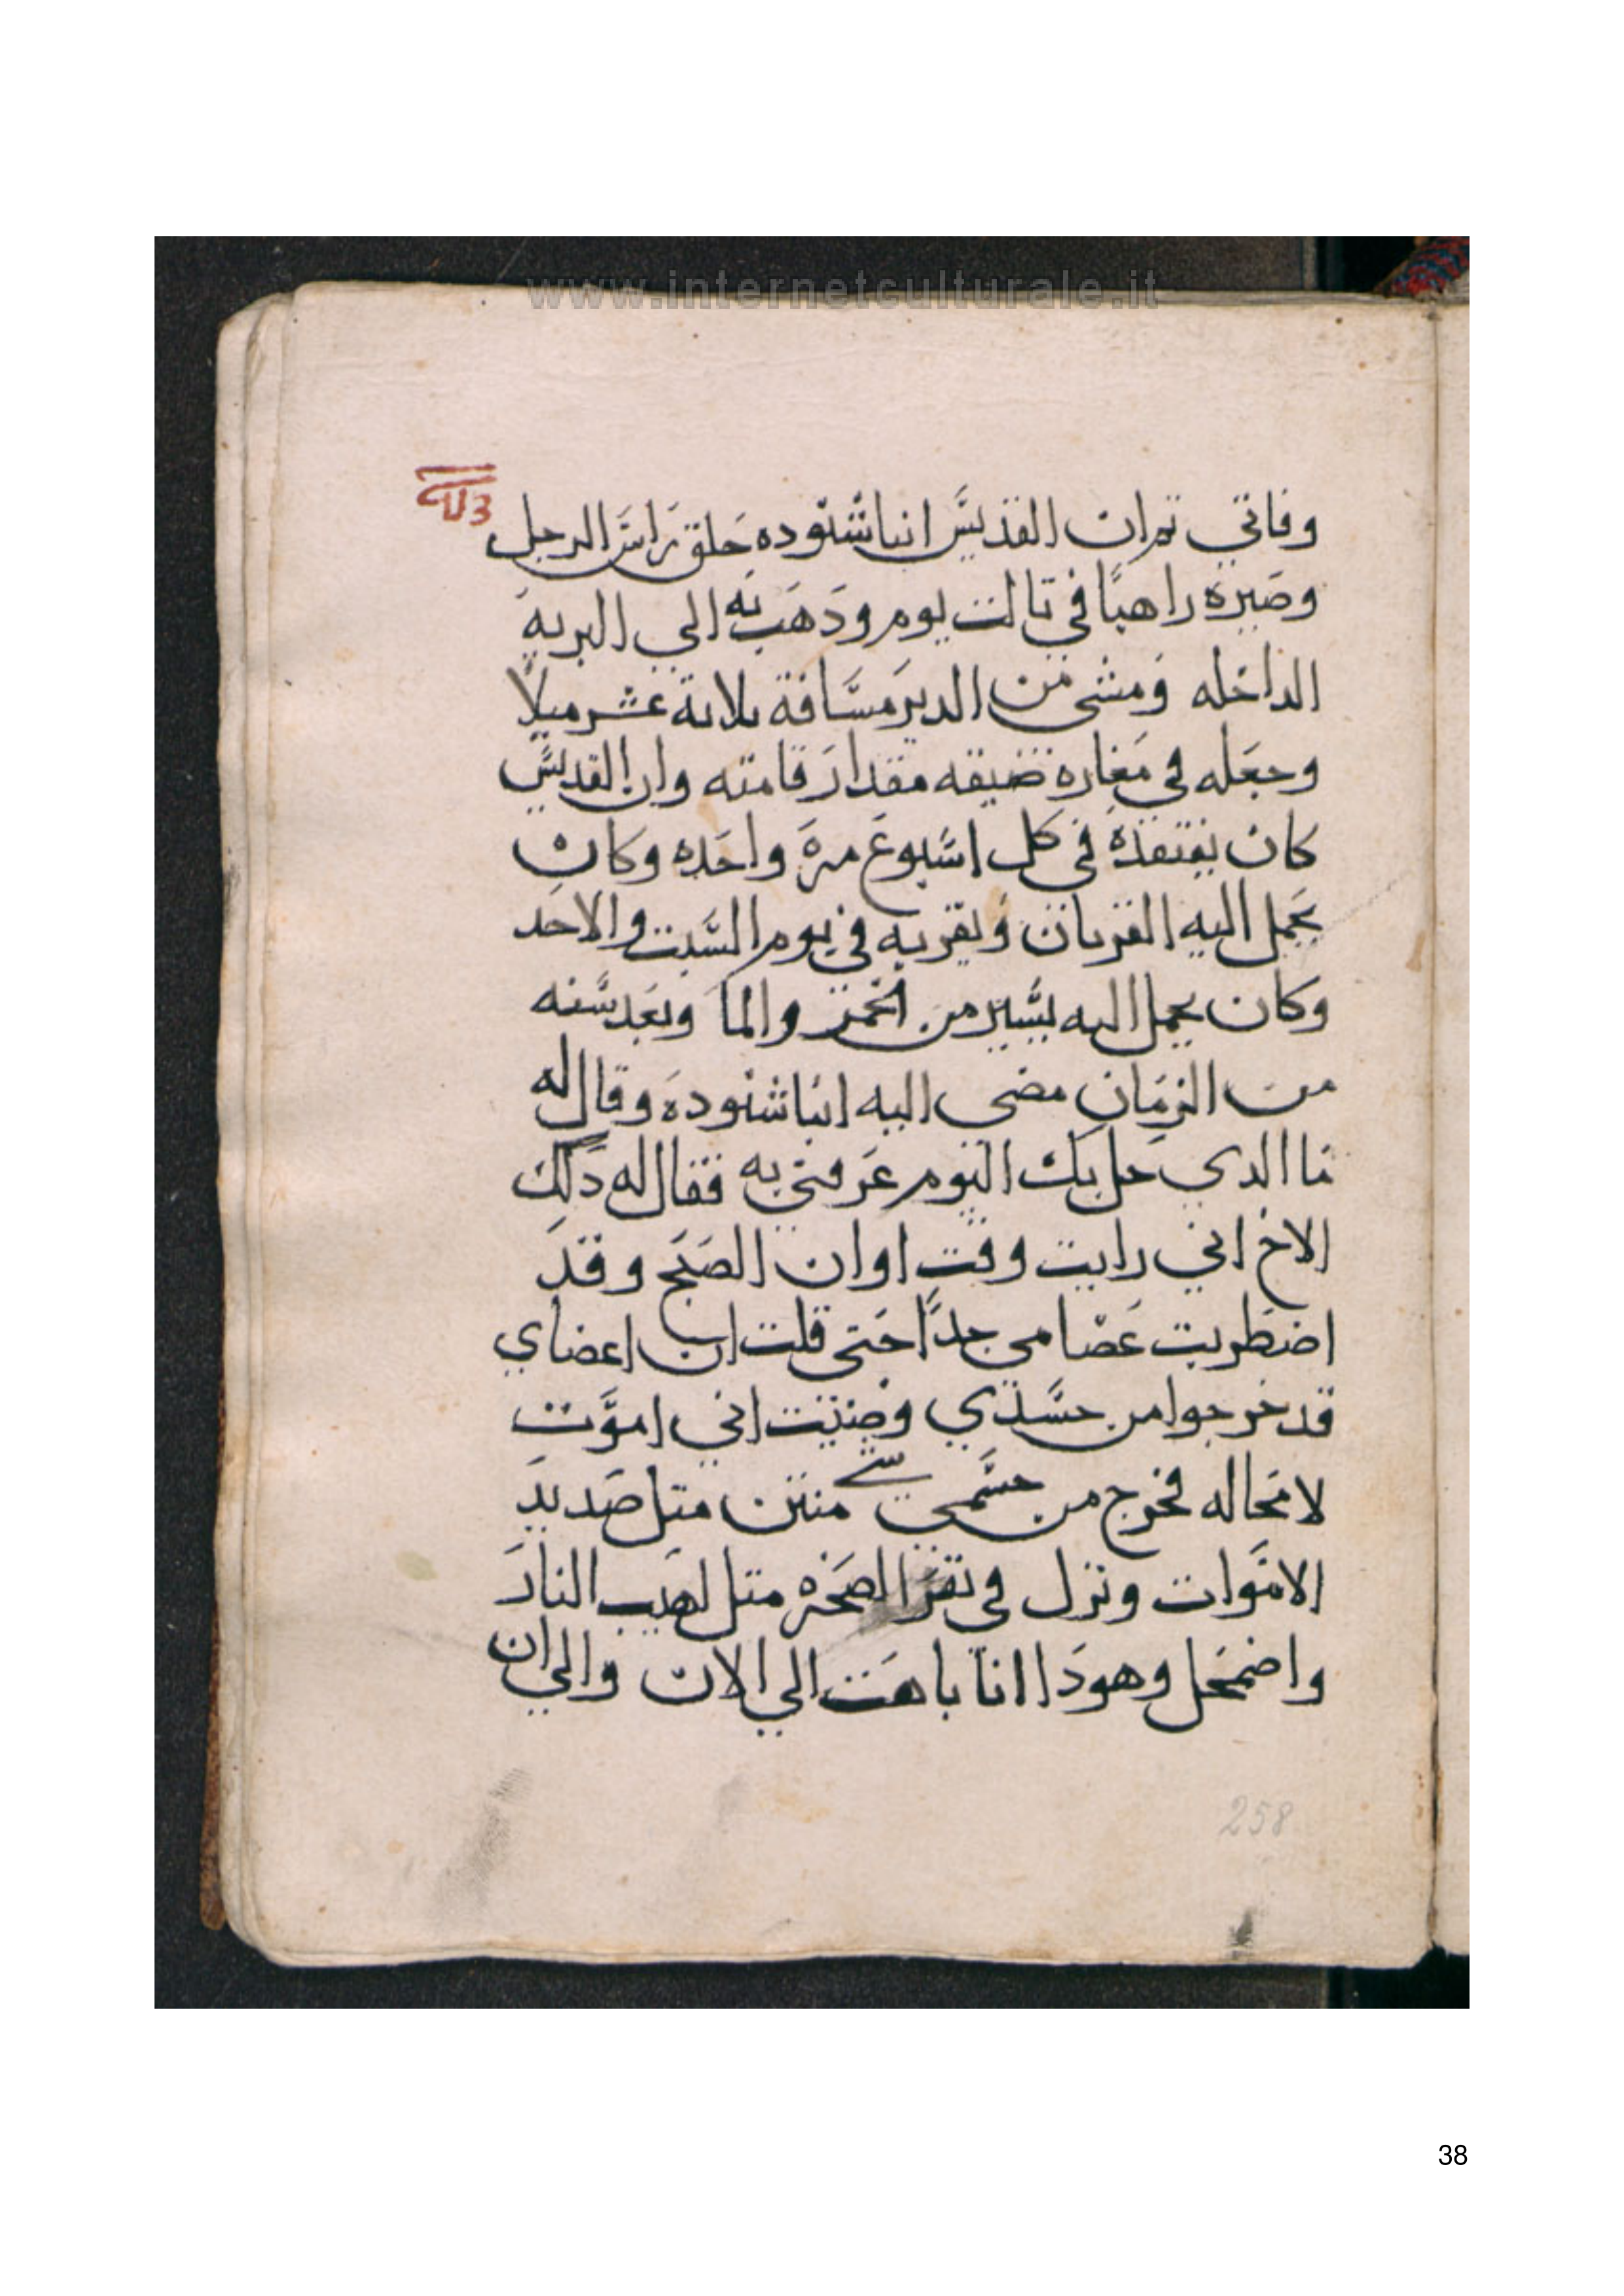 www.internetculturale.it
وفاتي تم ان القديس انبا شنوده حلق راس الرجل
وصيره راهبًا في تالت يوم ودهب به الي البرية
الداخله ومشى من الدير مسافة تلاتة عشر ميلاً
وجعله في مغاره ضيقه مقدار قامته وان القديس
كان يفتقده في كل اسبوع مرة واحده وكان
يحمل اليه القربان ويقربه في يوم السبت والاحد
وكان يحمل اليه يسير من الخبز والما وبعد سنه
من الزمان مضى اليه انبا شنوده وقال له
ما الدي حل بك اليوم عرفني به فقال له دلك
الاخ اني رايت وقت اوان الصبح وقد
اضطربت عضامي جداً حتى قلت ان اعضاي
قد خرجوا من جسدي وضننت اني اموت
لا محاله فخرج من جسمي شي منتن متل صديد
الاموات ونزل في نقر الصخره متل لهيب النار
واضمحل وهودا انا باهت الي الان والي ان
258
38